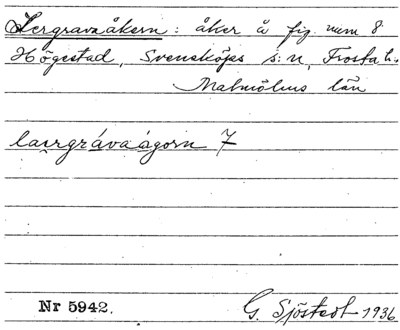 Lergravaåkern: åker å fig. num 8
Högestad, Svensköps s:n, Frosta h.
Malmöhus län
laırgrávaágorn 7
Nr 5942.
G. Sjöstedt 1936